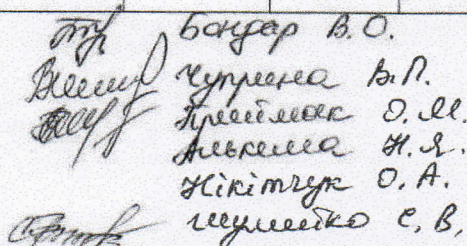 Бондар В.О.
Чуприна В.П.
Приймак О.М.
Алькема Н.Я.
Нікітчук О.А.
Шулейко С.В.